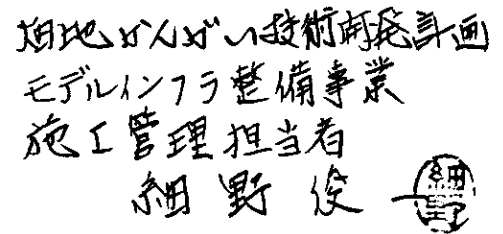 畑地かんがい技術開発計画
モデルインフラ整備事業
施工管理担当者
細野 俊
細野